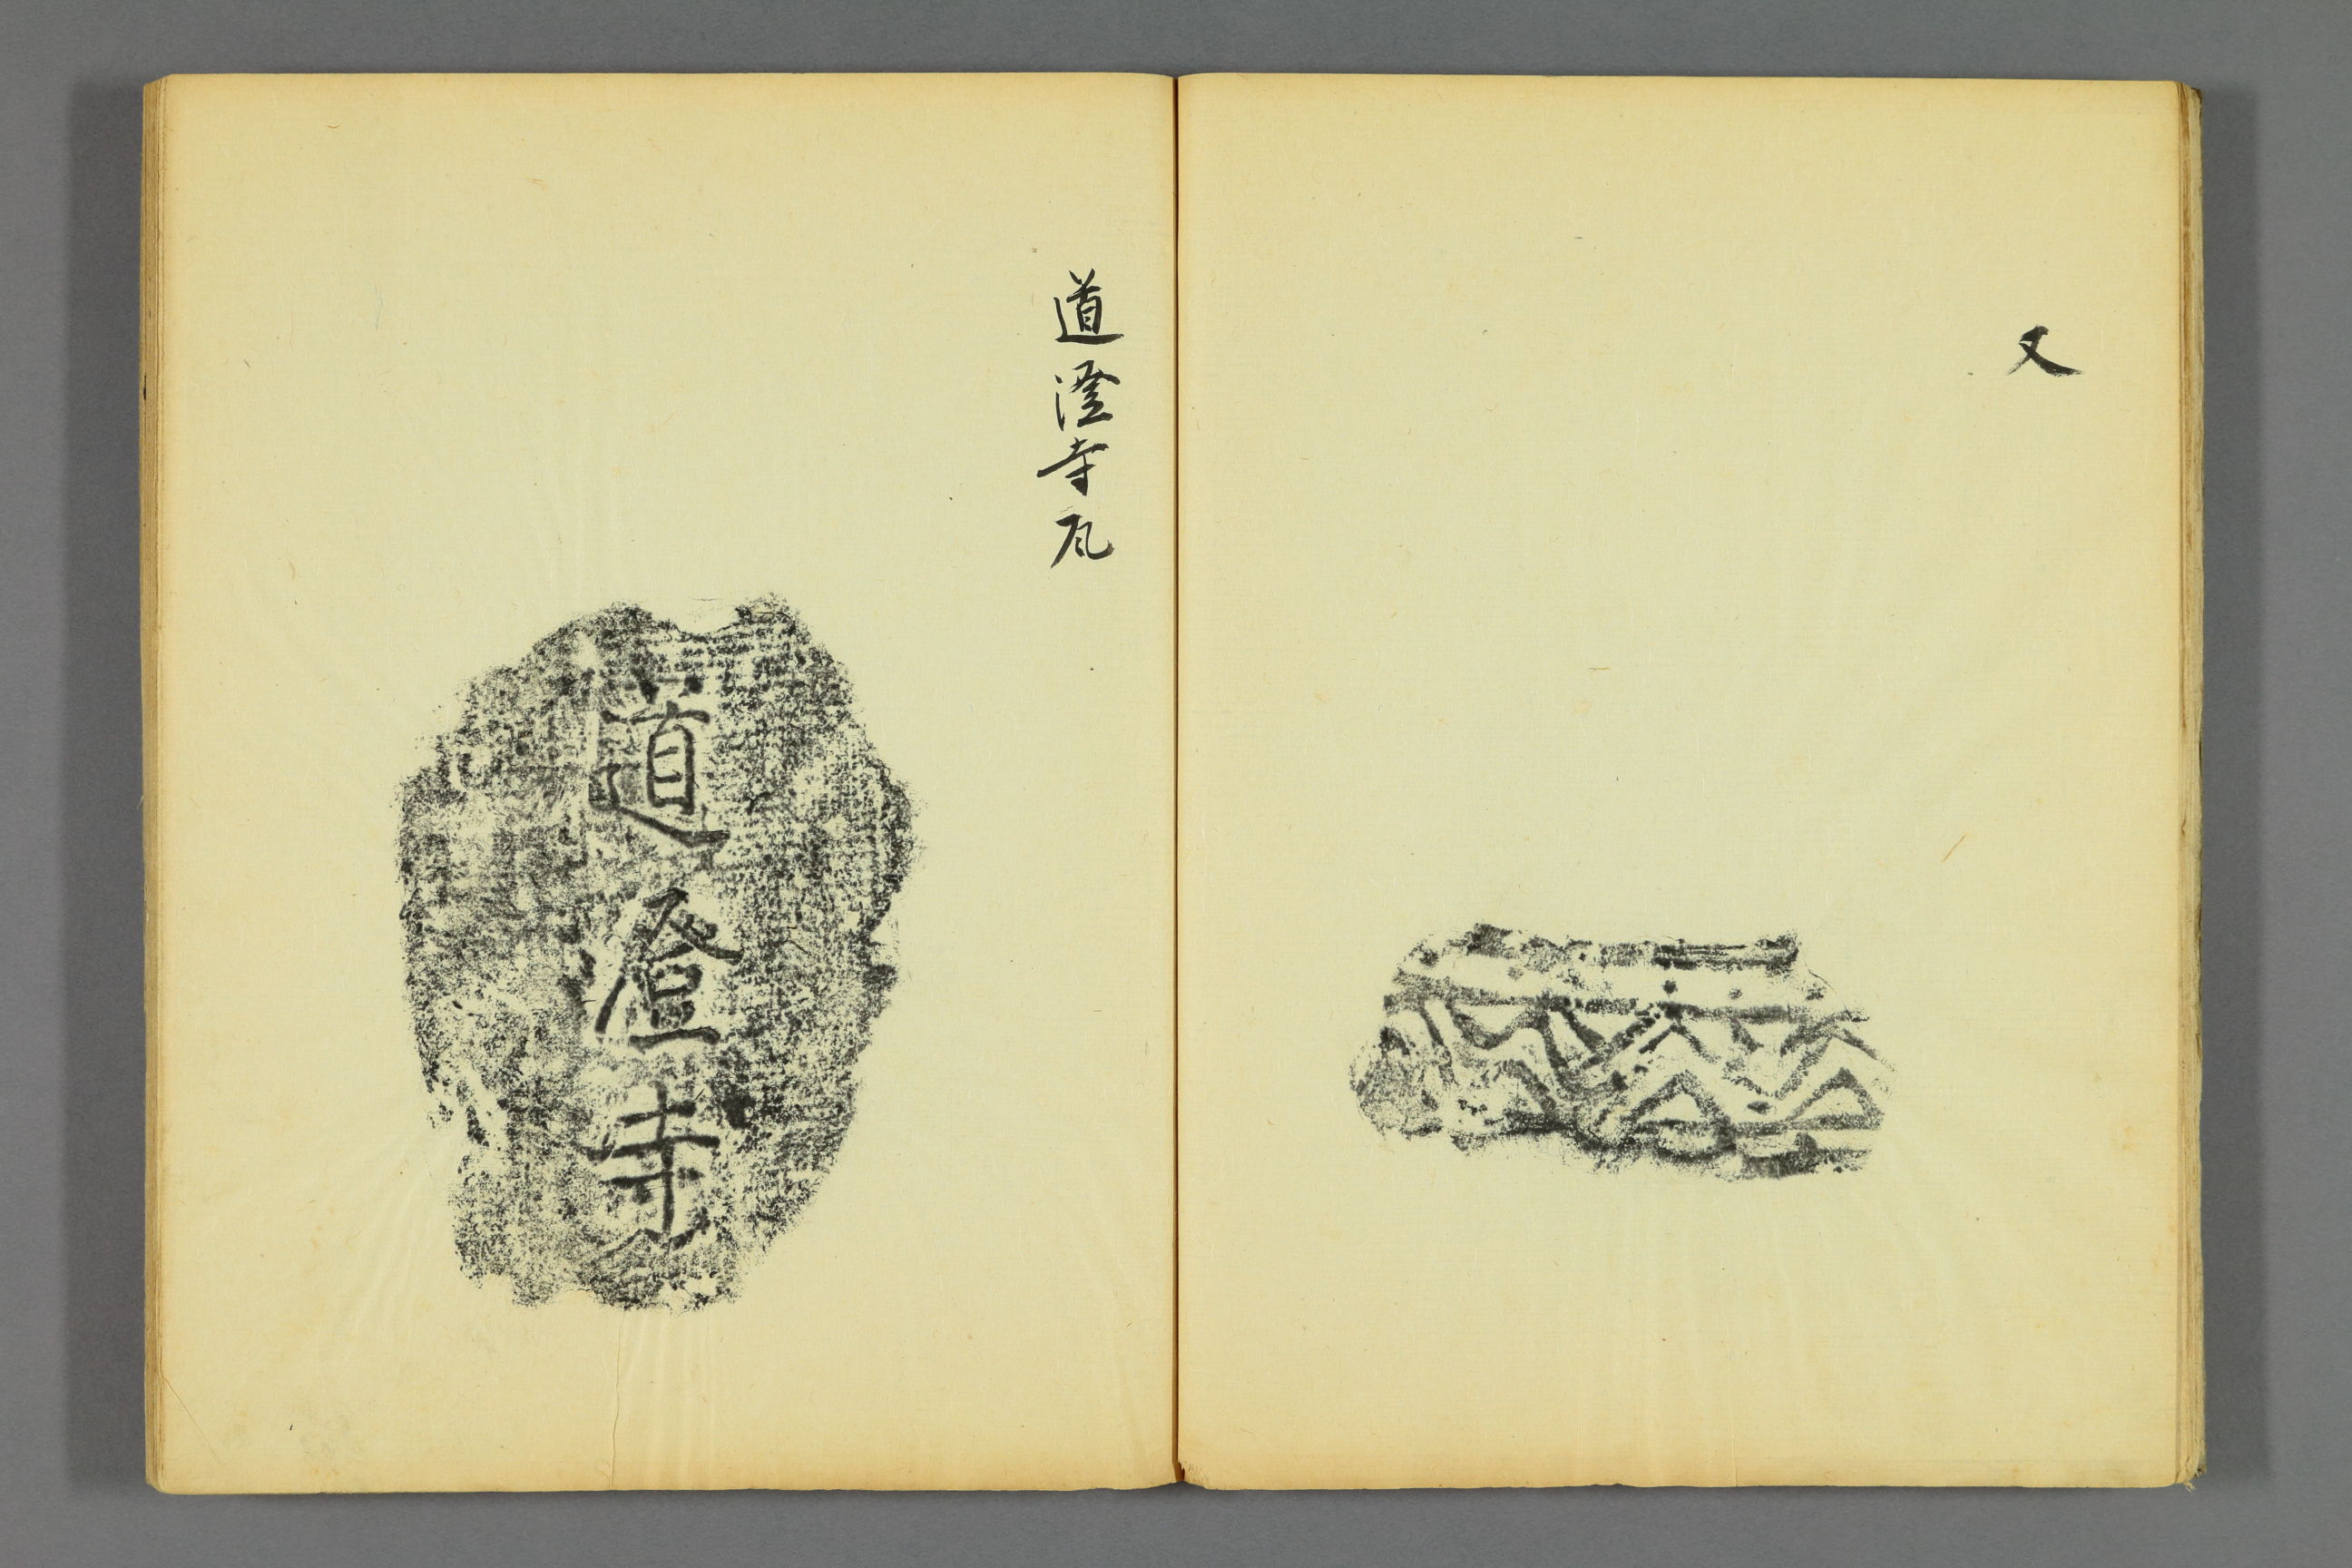 又
道澄寺瓦
道澄寺